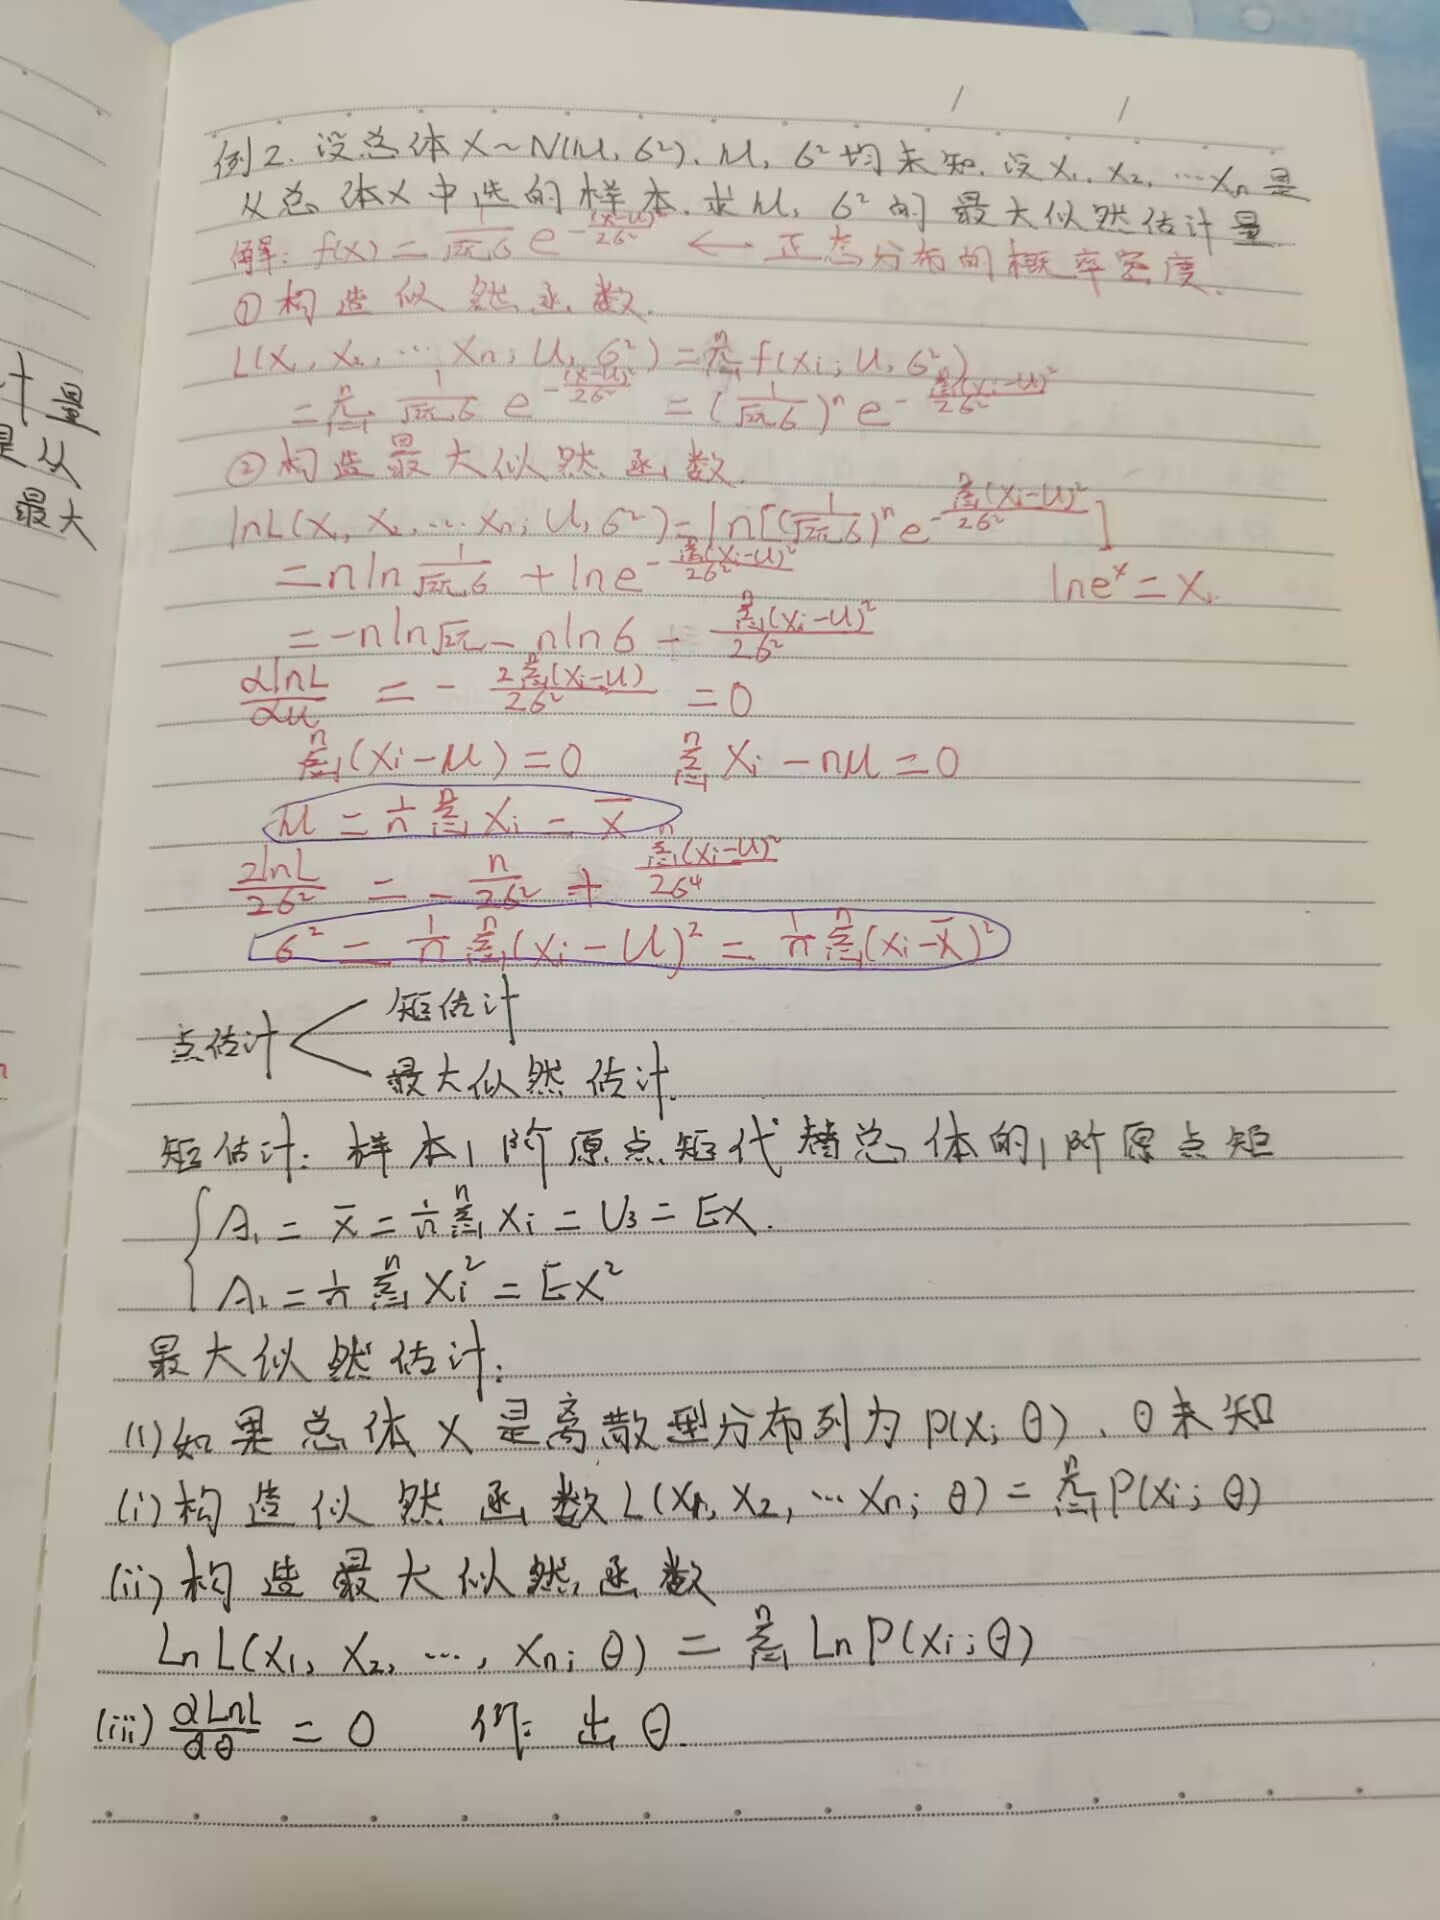 例2. 设总体X~N(μ, σ²). μ, σ²均未知. 设X₁, X₂, …Xₙ是
从总体X中选的样本. 求μ, σ²的最大似然估计量
解: f(x) = 1/(√2π σ) e^{-(x-u)²/2σ²} ← 正态分布的概率密度.
① 构造似然函数.
L(X₁, X₂, … Xₙ; u, σ²) = ∏_{i=1}^n f(Xi; u, σ²)
= ∏_{i=1}^n 1/(√2π σ) e^{-(x-u)²/2σ²} = (1/(√2π σ))ⁿ e^{-∑_{i=1}^n(Xi-u)²/2σ²}
② 构造最大似然函数.
lnL(X₁, X₂, … Xₙ; u, σ²) = ln[(1/(√2π σ))ⁿ e^{-∑_{i=1}^n(Xi-u)²/2σ²}]
= n ln 1/(√2π σ) + ln e^{-∑_{i=1}^n(Xi-u)²/2σ²} lneˣ = x.
= -n ln√2π - n lnσ - ∑_{i=1}^n(Xi-u)²/2σ²
αlnL/αu = - 2∑_{i=1}^n(Xi-u)/2σ² = 0
∑_{i=1}^n(Xi-μ) = 0 ∑_{i=1}^n Xi - nμ = 0
μ = 1/n ∑_{i=1}^n Xi = X̄
2lnL/2σ² = - n/2σ² + ∑_{i=1}^n(Xi-u)²/2σ⁴
σ² = 1/n ∑_{i=1}^n(Xi-u)² = 1/n ∑_{i=1}^n(Xi-X̄)²
矩估计
点估计
最大似然估计.
矩估计: 样本1阶原点矩代替总体的1阶原点矩
A₁ = X̄ = 1/n ∑_{i=1}^n Xi = U₃ = EX.
A₂ = 1/n ∑_{i=1}^n Xi² = EX²
最大似然估计:
(1) 如果总体X是离散型分布列为P(X; θ), θ未知
(i) 构造似然函数L(X₁, X₂, …Xₙ; θ) = ∏_{i=1}^n P(Xi; θ)
(ii) 构造最大似然函数
LnL(X₁, X₂, …, Xₙ; θ) = ∑_{i=1}^n LnP(Xi; θ)
(iii) dLnL/dθ = 0 出θ.
计量
是从
最大